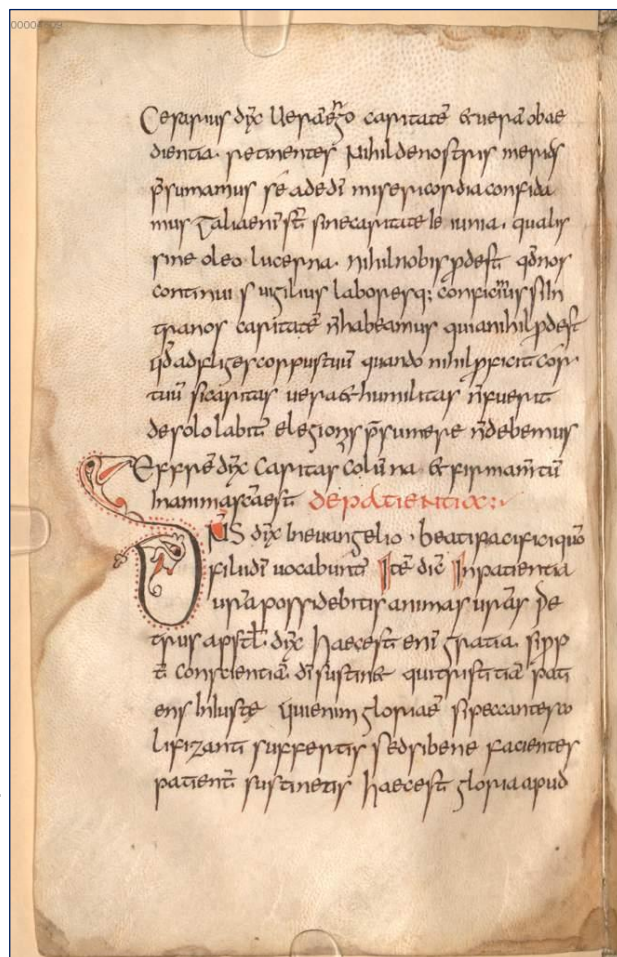 Cesarius dx̄ Uerā ergo caritatē & uerā obae
dientia. retinentes Nihil de nostris meritis
p̄sumamus sed ad dī misericordia confida
mus talia enī st̄ sine caritate ieiunia. qualis
sine oleo lucerna. nihil nobis pdest qd nos
continui s uigilius laboresq; conficimus si In
tra nos caritatē n̄ habeamus quia nihil pdest
qd adfliges corpus tuū quando nihil pficit cor
tuū si caritas uera & humilitas n̄ fuerit
de solo labiis p̄sumere n̄ debemus
Effrē dx̄ Caritas colūna & firmam̄tū
In anima sc̄a est de patientia:
DNS dx̄ In euangelio. beati pacifici quō
filii dī uocabunt̄ Itē dic̄ In patientia
ur̄a possidebitis animas ur̄as Pe
trus apstl̄. dx̄ haec est enī gratia. si pp
t̄ conscientiā dī sustin& quis tristitiā pati
ens Iniuste quæ enim gloria ē si peccantes co
lifizanti suffertis sed si bene facientes
patient̄ sustinetis haec est gloria apud